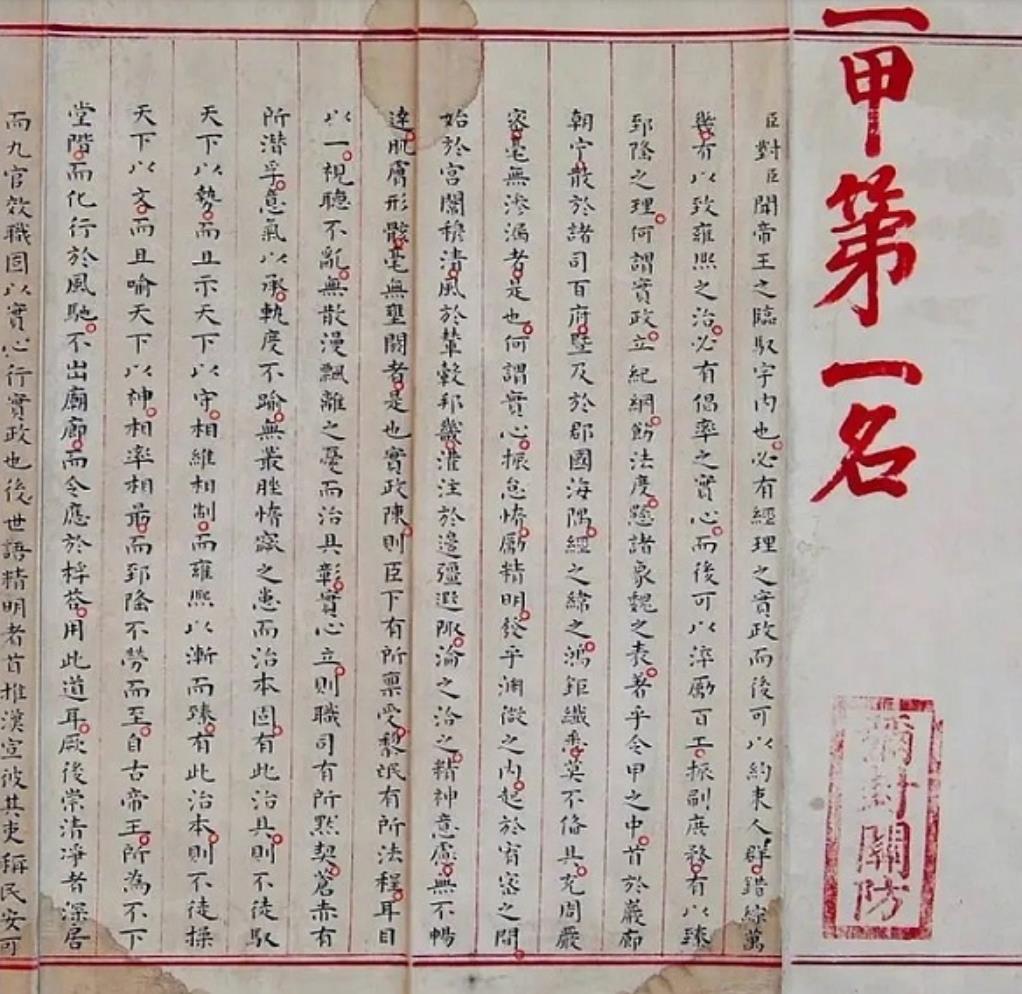 一甲第一名
彌封關防
臣對臣聞帝王之臨馭宇內也必有經理之實政而後可以約束人群錯綜萬
幾有以致雍熙之治必有倡率之實心而後可以淬勵百工振刷庶務有以臻
郅隆之理何謂實政立紀綱飭法度懸諸象魏之表著乎令甲之中首於巖廊
朝宁散於諸司百府暨及於郡國海隅經之緯之鴻鉅纖悉莫不備具充周嚴
密毫無滲漏者是也何謂實心振怠惰勵精明發乎淵微之內起於宥密之間
始於宮闈穆清風於輦轂邦畿灌注於邊疆遐陬淪之洽之精神意慮無不暢
達肌膚形骸毫無壅閼者是也實政陳則臣下有所稟受黎氓有所法程耳目
以一視聽不亂無散漫飄離之憂而治具彰實心立則職司有所默契蒼赤有
所潛孚意氣以承軌度不踰無叢脞惰窳之患而治本固有此治具則不徒馭
天下以勢而且示天下以守相維相制而雍熙以漸而臻有此治本則不徒操
天下以文而且喻天下以神相率相勗而郅隆不勞而至自古帝王所為不下
堂階而化行於風馳不出廟廊而令應於桴答用此道耳厥後崇清凈者深居
而九官效職固以實心行實政也後世語精明者首推漢宣彼其吏稱民安可